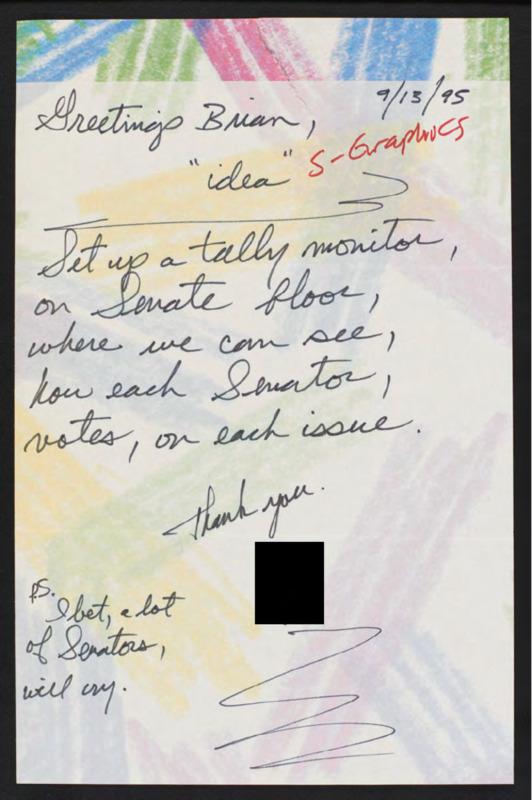 9/13/95
Greetings Brian,
S-Graphics
"idea"
Set up a tally monitor,
on Senate floor,
where we can see,
how each Senator,
votes, on each issue.
Thank you.
P.S.
I bet, a lot
of Senators,
will cry.